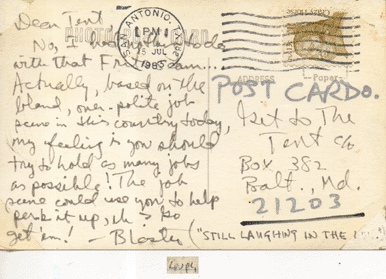 Dear Tent
No, I had nothing to do
with that
Actually, based on the
bland, over-polite job
scene in this country today,
my feeling is you should
try to hold as many jobs
as possible! The job
scene could use you to help
perk it up, eh? So
get 'em! - Blaster ("STILL LAUGHING IN THE
SAN ANTONIO, TX
PM
15 JUL
1985
ADDRESS
POST CARDO.
Tent
c/o
BOX 382
Balt., Md.
21203